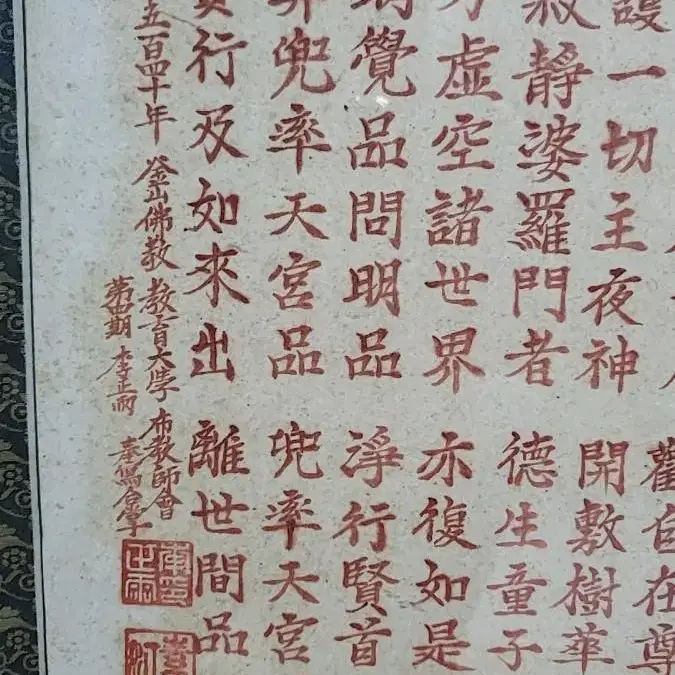 觀自在尊
護一切主夜神 開敷樹華
寂靜婆羅門者 德生童子
方虛空諸世界 亦復如是
明覺品問明品 淨行賢首
昇兜率天宮品 兜率天宮
賢行及如來出 離世間品
五百四十年 釜山佛教 教育大學 布教師會
第四期 李正雨 奉寫合掌